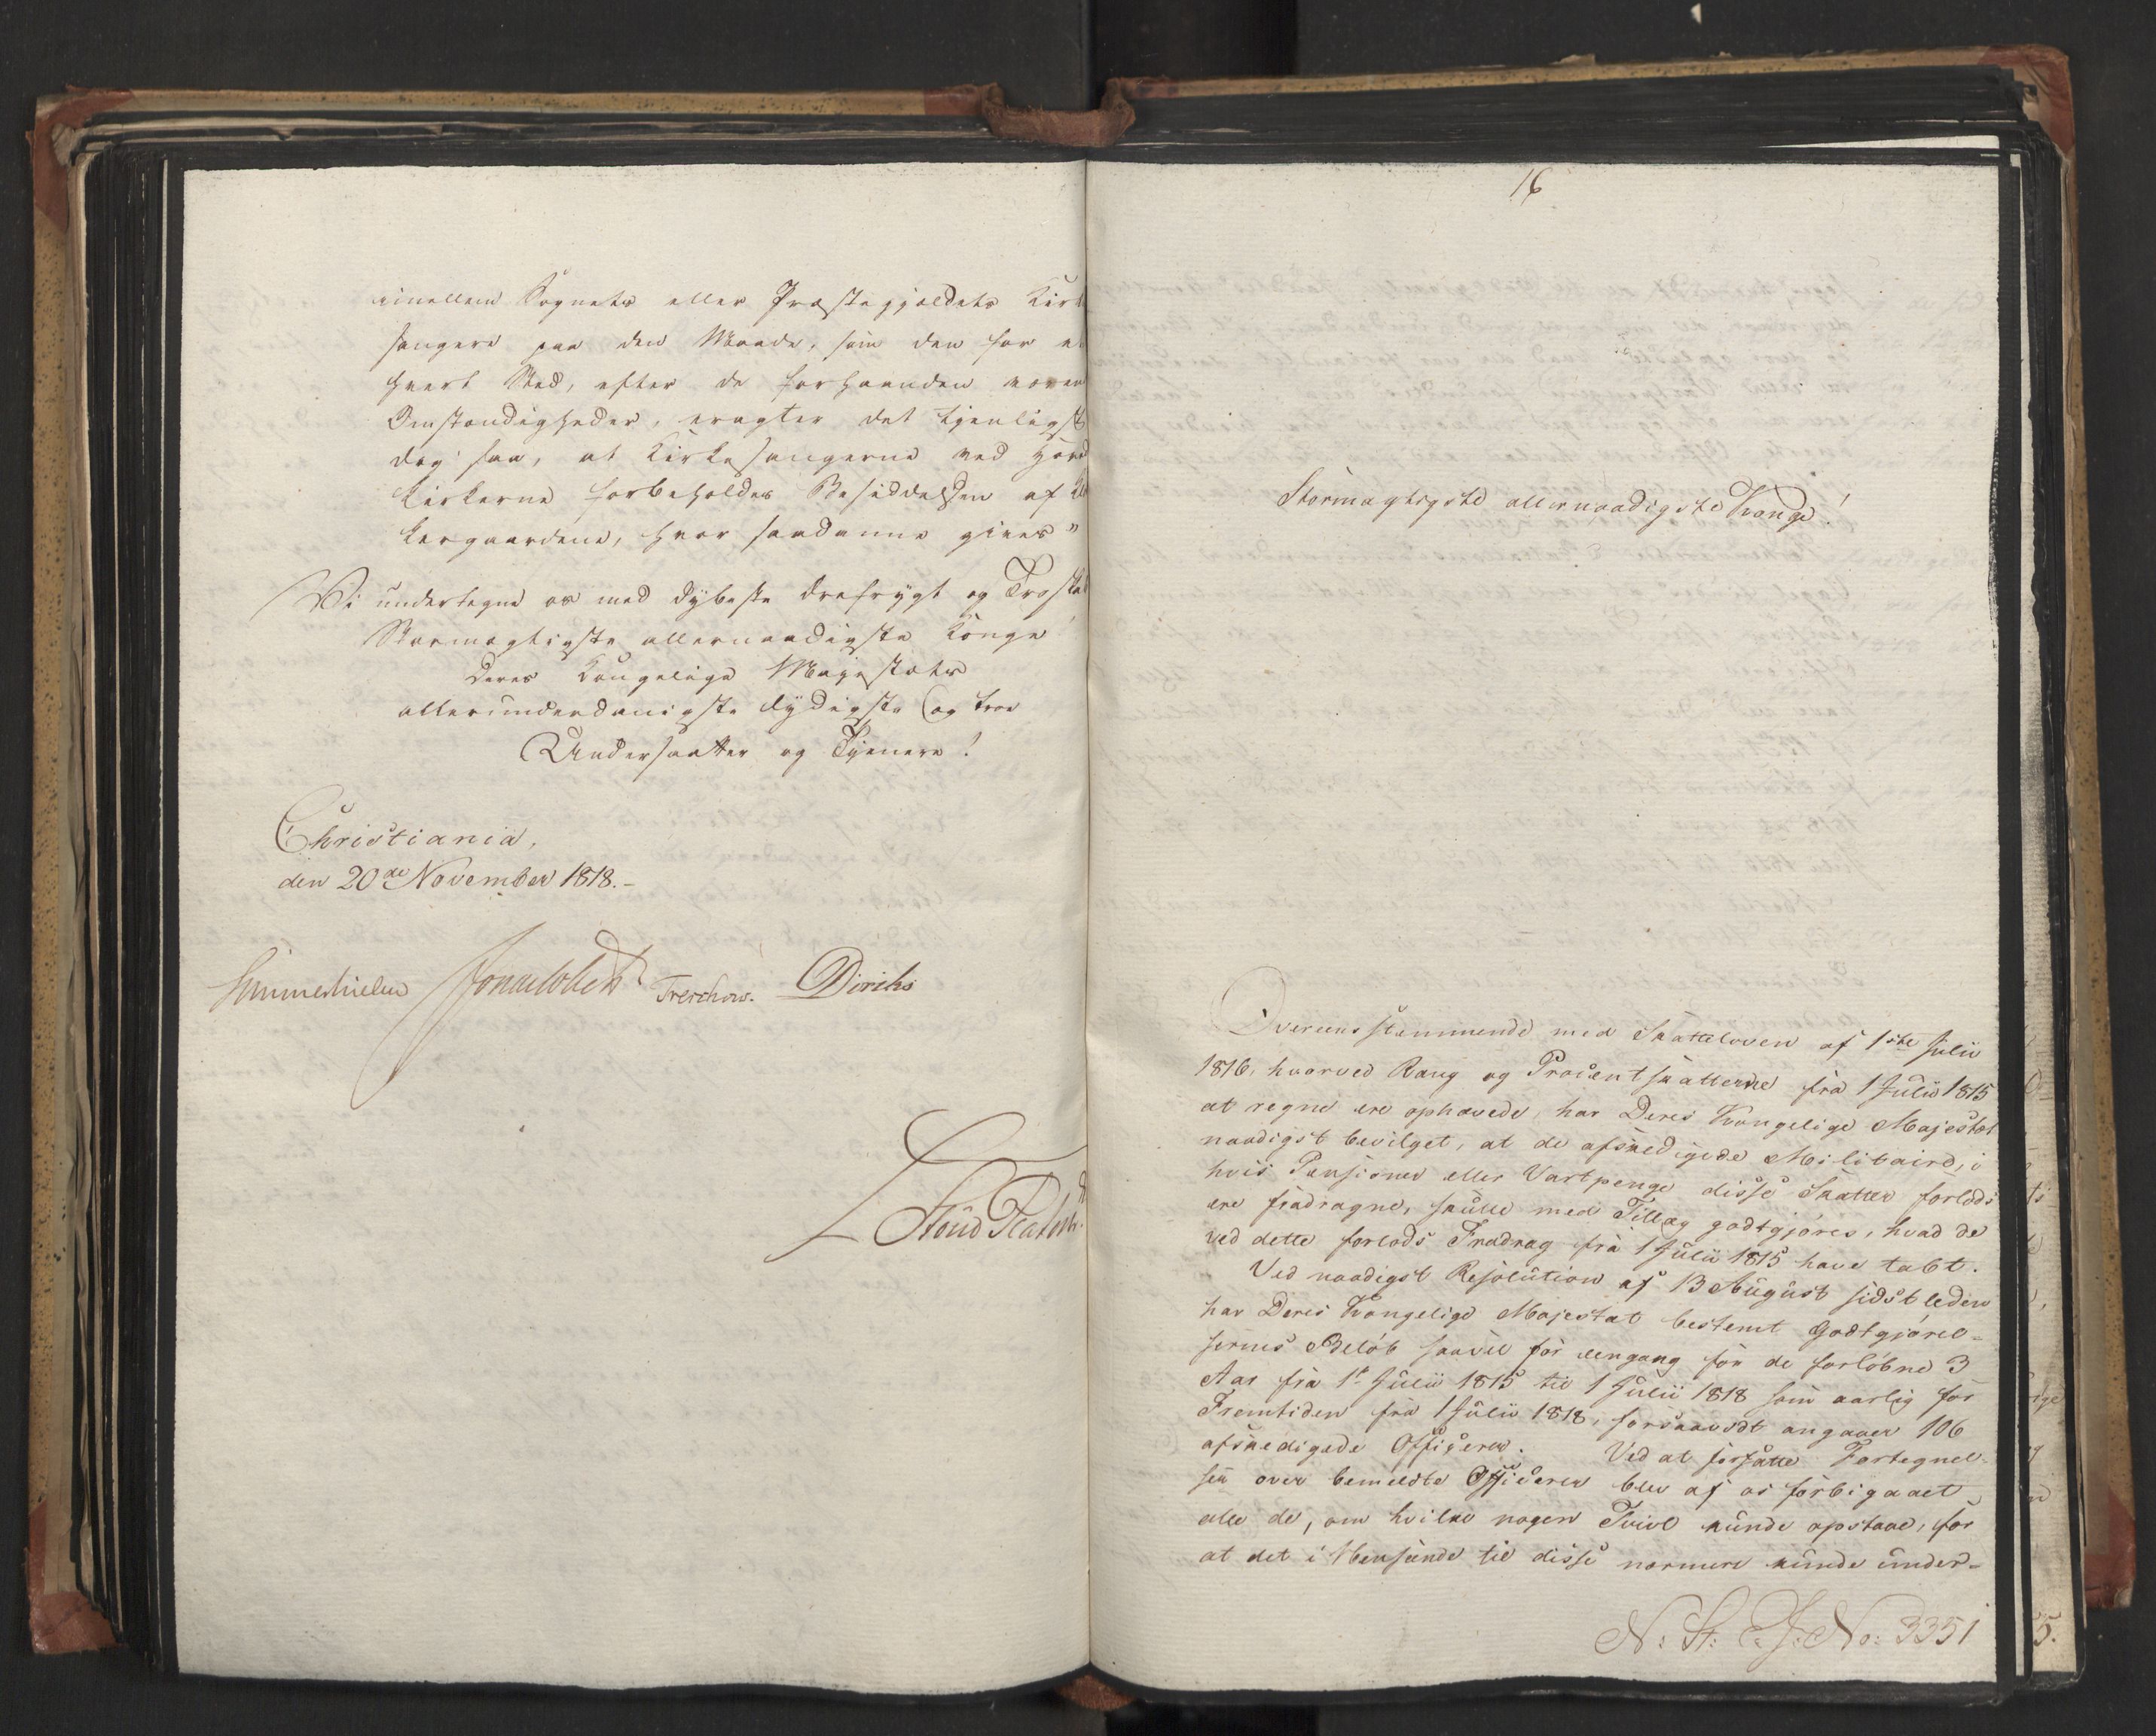 imellem Sognets eller Præstegjeldets Kirke
sangere paa den Maade, som den for et
hvert Sted, efter de forhaanden væren
Omstændigheder, eragter det tjenligst
dog saa, at Kirkesangerne ved Hoved
kirkerne forbeholdes Besiddelsen af Klo
kergaardene, hvor saadanne gives"
Vi undertegne os med dybeste Ærefrygt og Troskab
Stormægtigste allernaadigste Konge
Deres Kongelige Majestæts
allerunderdanigste lydigste og troe
Undersaatter og Tjenere!
Christiania,
den 20de November 1818.-
Sommerhielm Jonas Collett Treschow. Diriks
Stoud Platou
16
Stormægtigste allernaadigste Konge!
Overeensstemmende med Skatteloven af 1ste Julii
1816, hvorved Rang og Procentskatterne fra 1 Julii 1815
at regne ere ophævede, har Deres Kongelige Majestæt
naadigst bevilget, at de afskedigede Militaire, i
hvis Pensioner eller Vartpenge disse Skatter forlods
ere fradragne, skulle med Tillæg godtgjøres, hvad de
ved dette forlods Fradrag fra 1 Julii 1815 have tabt.
Ved naadigst Resolution af 13 August sidstleden
har Deres Kongelige Majestæt bestemt Godtgjørel=
sernes Beløb saavel for eengang for de forløbne 3
Aar fra 1t Julii 1815 til 1 Julii 1818 som aarlig for
Fremtiden fra 1 Julii 1818, forsaavidt angaaer 106
afskedigede Officerer. Ved at forfatte Fortegnel-
sen over bemeldte Officerer blev af os forbigaaet
alle de, om hvilke nogen Tvivl kunde opstaae, for
at det i Henseende til disse nærmere kunde under-
N: St: C: J: No: 3351